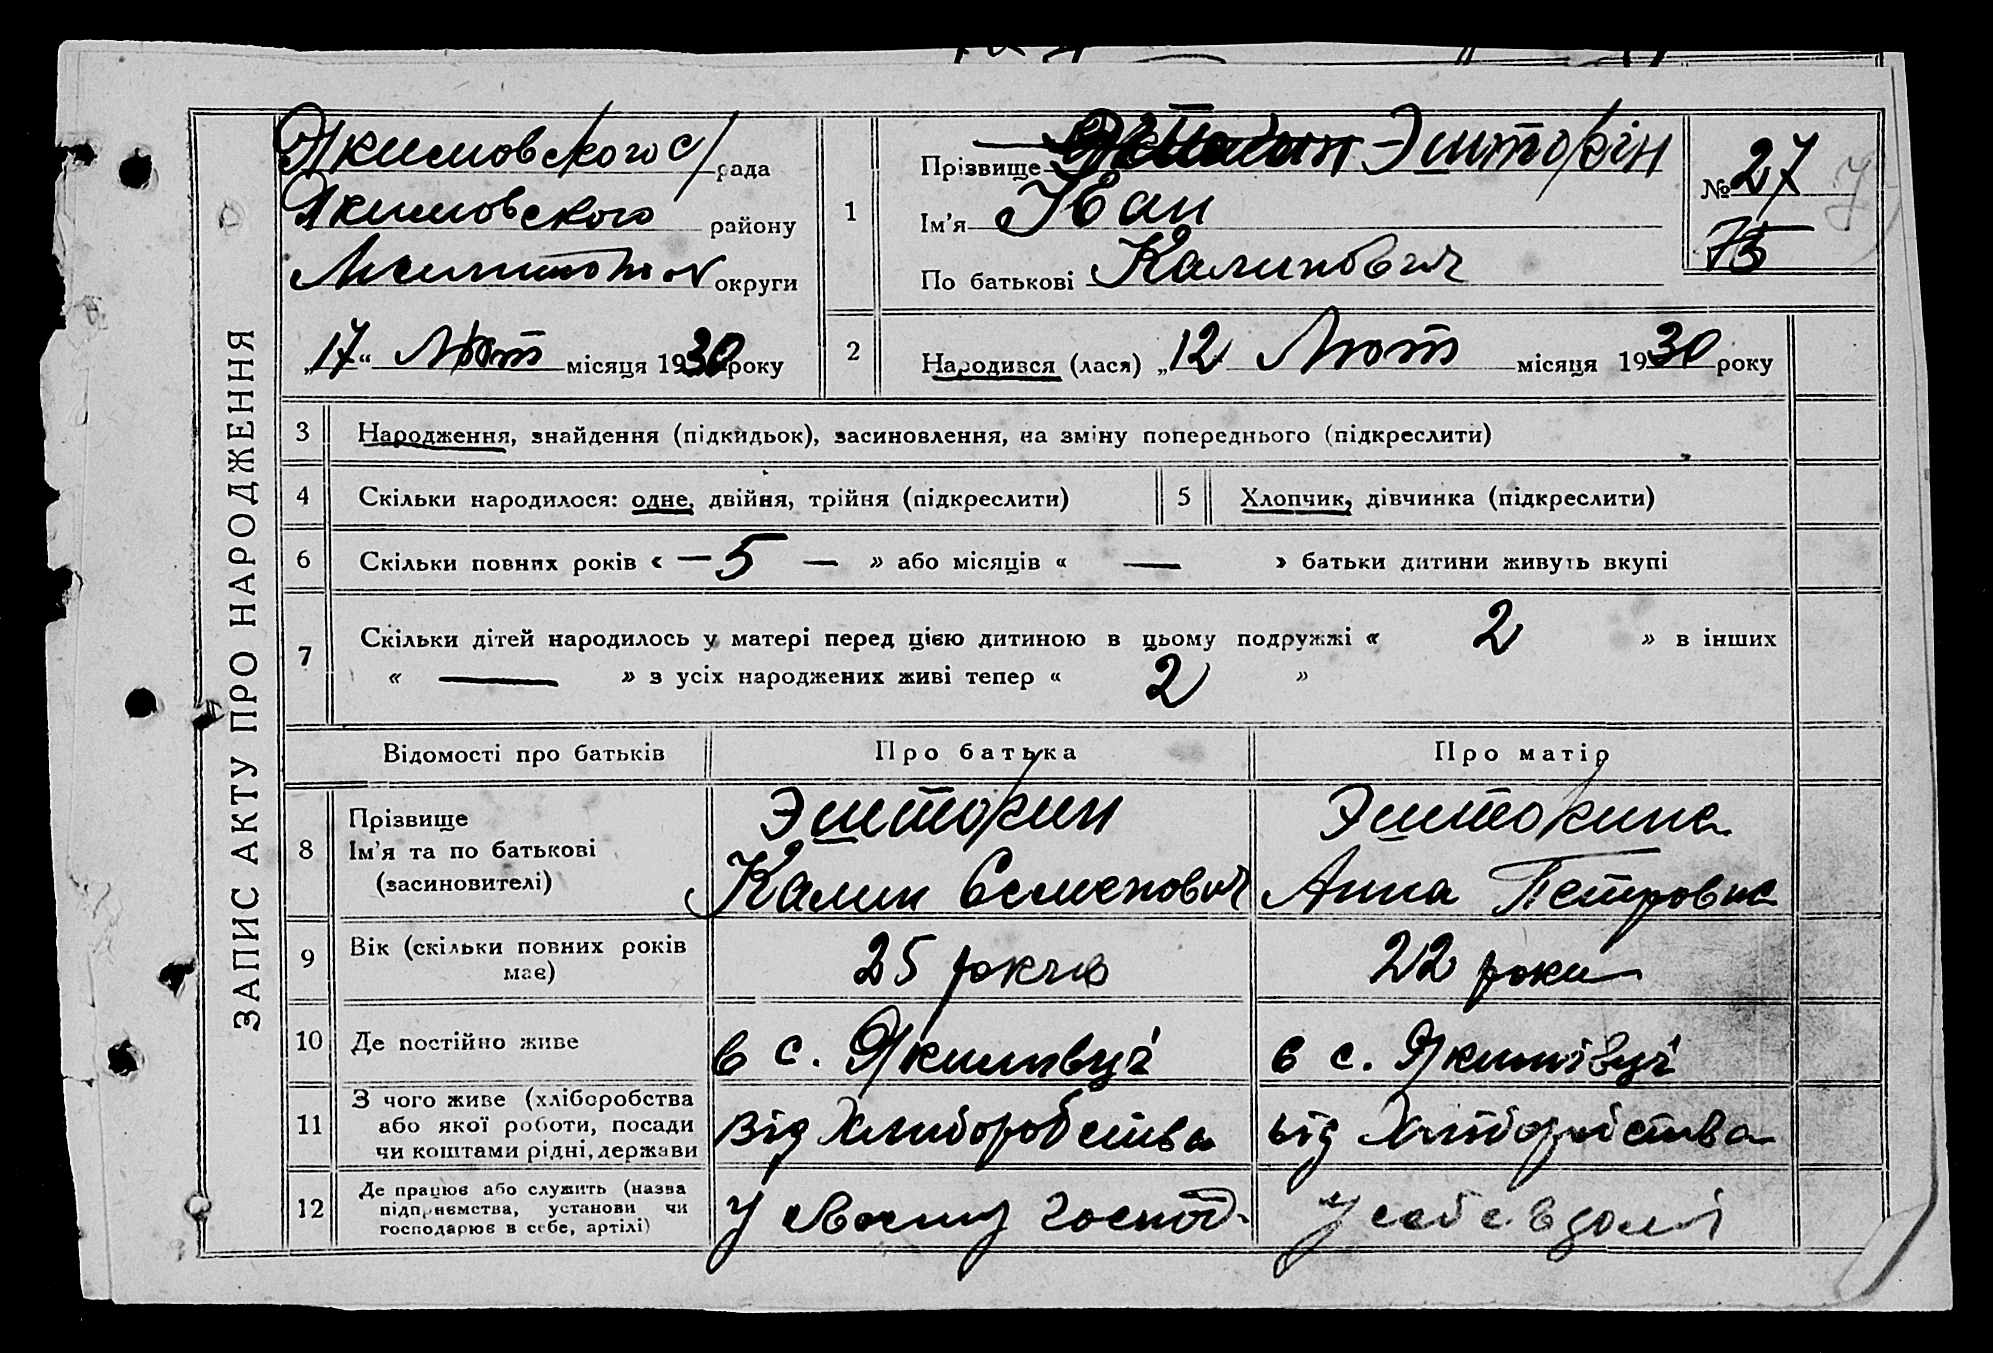 ЗАПИС АКТУ ПРО НАРОДЖЕННЯ
Якимовского с/рада
Якимовского району
Мелитопол округи
„17“ Лют місяця 1930 року
1
Прізвище Эштокін
Ім'я Іван
По батькові Калинович
№ 27
75
2
Народився (лася) „12 Лют місяця 1930 року
3 Народження, знайдення (підкидьок), засиновлення, на зміну попереднього (підкреслити)
4 Скільки народилося: одне, двійня, трійня (підкреслити)
5 Хлопчик, дівчинка (підкреслити)
6 Скільки повних років « — 5 — » або місяців « — » батьки дитини живуть вкупі
7 Скільки дітей народилось у матері перед цією дитиною в цьому подружжі « 2 » в інших
« — » з усіх народжених живі тепер « 2 »
Відомості про батьків Про батька Про матір
8 Прізвище
Ім'я та по батькові
(засиновителі)
Эштокин
Калин Семенович
Эштокина
Анна Петровна
9 Вік (скільки повних років
має)
25 рокив
22 роки
10 Де постійно живе
в с. Якимівці
в с. Якимівці
11 З чого живе (хліборобства
або якої роботи, посади
чи коштами рідні, держави
від Хлиборобства
від Хліборобства
12 Де працює або служить (назва
підприємства, установи чи
господарює в себе, артілі)
У своему господ.
У себе вдомі